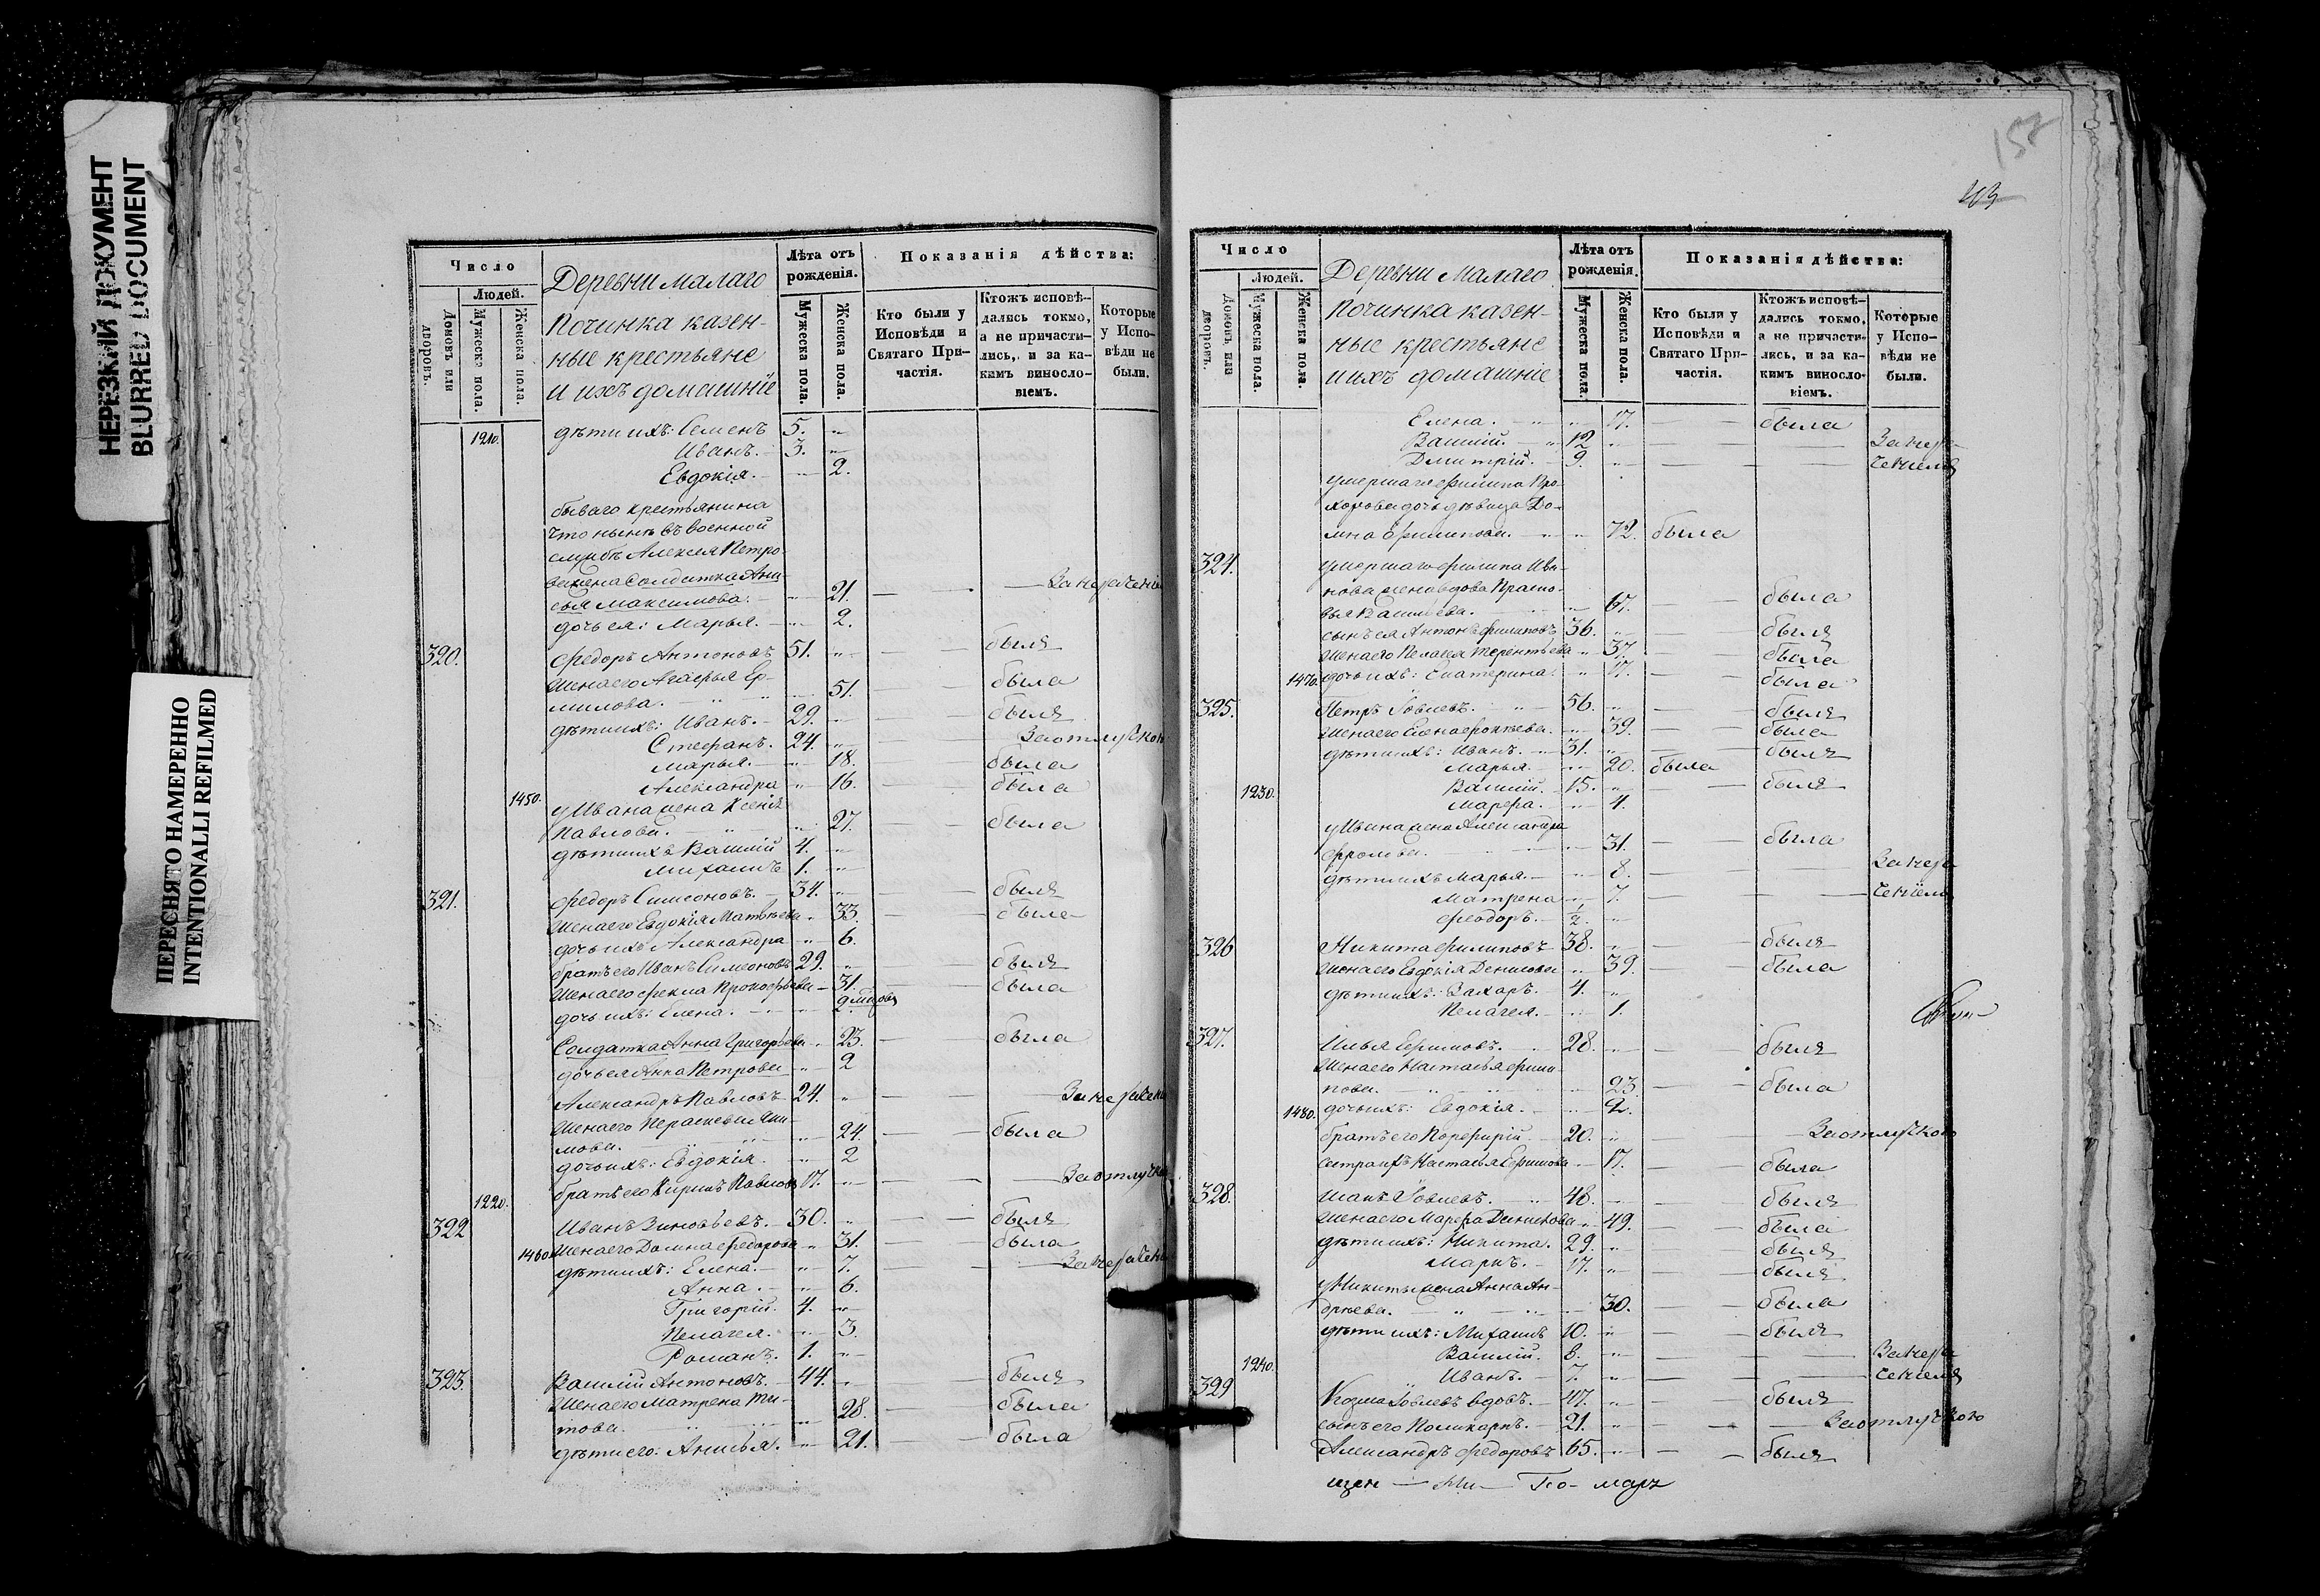 НЕРЕЗКИЙ ДОКУМЕНТ
BLURRED DOCUMENT
ПЕРЕСНЯТО НАМЕРЕННО
INTENTIONALLI REFILMED
Число
Людей.
Домовъ или дворовъ.
Мужеска пола.
Женска пола.
Деревни Малаго
Починка казен-
ные крестьяне
и ихъ домашніе
Лѣта отъ рожденія.
Мужеска пола.
Женска пола.
Показанія дѣйства:
Кто были у Исповѣди и Святаго При-частія.
Ктожъ исповѣ-дались токмо, а не причасти-лись, и за ка-кимъ винносло-віемъ.
Которые у Испо-вѣди не были.
1210. дѣти ихъ: Семенъ 5. "
Иванъ. 3. "
Евдокія. " 2.
бывшаго крестьянина
что нынѣ въ военной
службѣ Алексея Петро-
ва жена Солдатка Ани-
сья Максимова. " 21. — —
дочь ея: Марья. " 2.
320. Федоръ Антоновъ 51. " — — былъ
Жена его Агафья Ер-
милова. " 51. — — была
дѣти ихъ: Иванъ. 29. " — — былъ
Стефанъ. 24. " — — За отлучкою
Марья. " 18. — — была
Александра " 16. — — была
1450. у Ивана жена Ксенія
Павлова. " 27. — — была
дѣти ихъ Василій 4. "
Михаилъ 1. "
321. Федоръ Симеоновъ. 34. " — — былъ
Жена его Евдокія Матвѣева " 33. — — была
дочь ихъ Александра " 6.
братъ его Иванъ Симеоновъ 29. " — — былъ
Жена его Фекла Прокофьева 31. — — была
дочь ихъ: Елена. "
Солдатка Анна Григорьева " 23. — — была
дочь ея Анна Петрова " 2
Александръ Павловъ 24. " — —
Жена его Перасковья Яки-
мова. " 24. — — была
дочь ихъ: Евдокія. " 2
1220. братъ его Кирилъ Павловъ 17. " — —
322 Иванъ Зиновьевъ. 30. " — — былъ
1460. Жена его Домна Федорова " 31. — — была
дѣти ихъ: Елена. " 7. — —
Анна. " 6.
Григорій. 4. "
Пелагея. " 3.
Романъ. 1. "
323. Василій Антоновъ. 44. " — — былъ
Жена его Матрена Ти-
това. " 28. — — была
дѣти его: Анисья. " 21. — — была
157
Число
Людей.
Домовъ или дворовъ.
Мужеска пола.
Женска пола.
Деревни Малаго
Починка казен-
ные крестьяне
и ихъ домашніе
Лѣта отъ рожденія.
Мужеска пола.
Женска пола.
Показанія дѣйства:
Кто были у Исповѣди и Святаго При-частія.
Ктожъ исповѣ-дались токмо, а не причасти-лись, и за ка-кимъ винносло-віемъ.
Которые у Испо-вѣди не были.
Елена. " 17. — — была
Василій. 12 " — —
Дмитрій. 9. " — —
умершаго Филипа Про-
хорова дочь дѣвица До-
мна Филипова. " 72. была
324. умершаго Филипа Ива-
нова жена вдова Праско-
вья Васильева. " 67. — — была
сынъ ея Антонъ Филиповъ 36. " — — былъ
Жена его Пелагея Терентьева " 37. — — была
1470. дочь ихъ: Екатерина. " 17. — — была
325. Петръ Іовлевъ. 56. " — — былъ
Жена его Елена Фоктѣева. " 39. — — была
дѣти ихъ: Иванъ. 31. " — — былъ
Марья. " 20. была
1230. Василій. 15. " — — былъ
Марфа. " 4.
у Ивана жена Александра
Фролова. " 31. — — была
дѣти ихъ Марья. " 8.
Матрена " 7. — —
Феодоръ. ½. "
326 Никита Филиповъ 38. " — — былъ
Жена его Евдокія Денисова " 39. — — была
дѣти ихъ: Захаръ. 4. "
Пелагея. " 1.
327. Илья Ефимовъ. 28. " — — былъ
Жена его Настасья Фили-
пова. " 23. — — была
1480. дочь ихъ: Евдокія. " 2.
братъ его Порфирій 20. " — — За отлучкою
сестра ихъ Настасья Ефимова " 17. — — была
328. Исакъ Іовлевъ. 48. " — — былъ
Жена его Марфа Денисова " 49. — — была
дѣти ихъ: Никита. 29. " — — былъ
Маркъ. 17. " — — былъ
у Никиты жена Анна Ан-
дреева. " 30. — — была
дѣти ихъ: Михаилъ 10. " — — былъ
1240. Василій. 8. " — —
Иванъ. 7. " — —
329 Козма Іовлевъ вдовъ. 47. " — — былъ
сынъ его Поликарпъ. 21. " — — За отлучкою
Александръ Федоровъ 65. " — — былъ